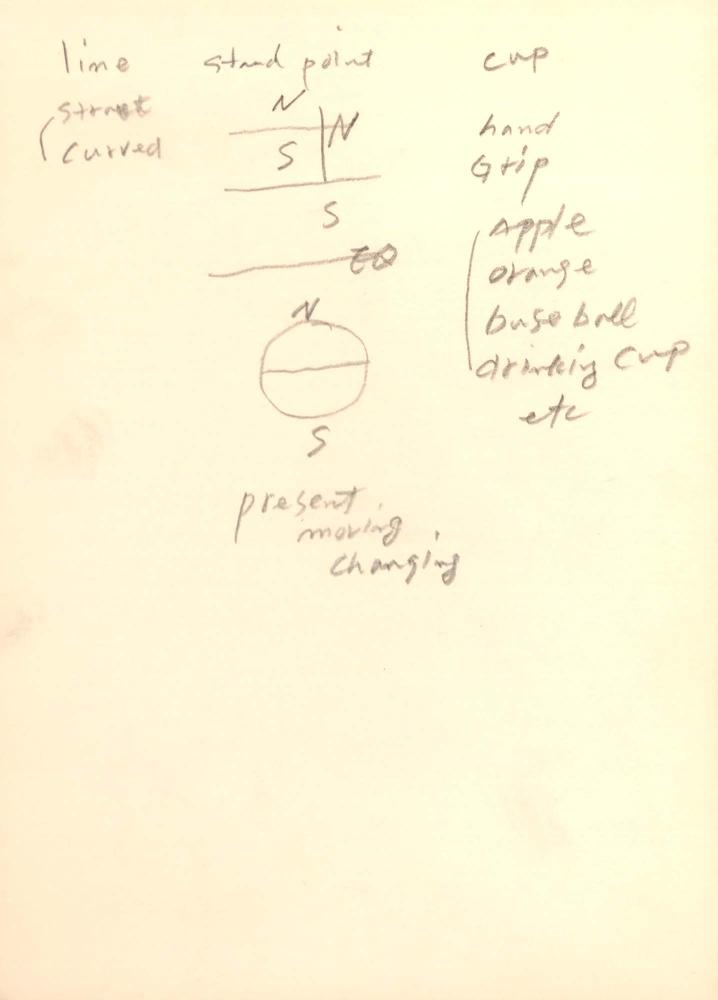 line
strait
curved
stand point
N
N
S
S
EQ
N
S
present.
moving.
changing
cup
hand
Grip
Apple
orange
base ball
drinking cup
etc